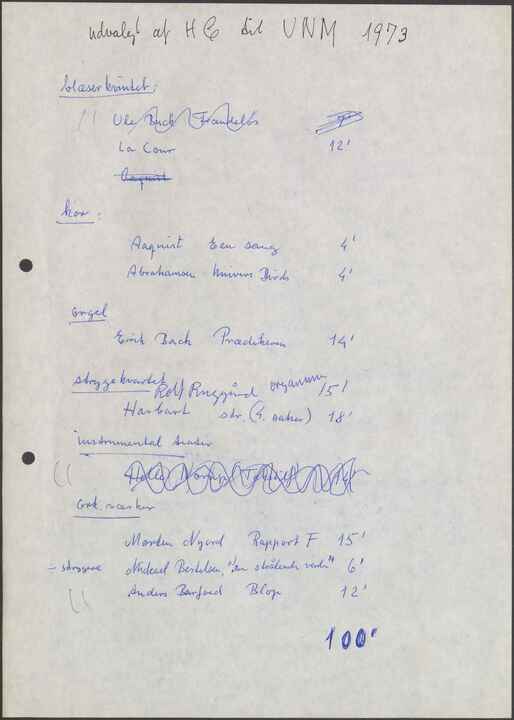 udvalgt af HG til UNM 1973
blæserkvintet:
La Cour 12'
Aaquist
kor:
Aaquist Een sang 4'
Abrahamsen Univers Birds 4'
orgel
Erik Bach Prædikeren 14'
strygekvartet Rolf Ruggård organum 15'
Harbart str. (4. satser) 18'
instrumental teater
ork. værker
Morten Nyord Rapport F 15'
= strygere Mikael Bertelsen, "den strålende verden" 6'
Anders Barfoed Blop 12'
100'